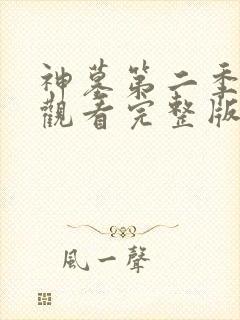 神墓第二季
觀看完整版
風一聲